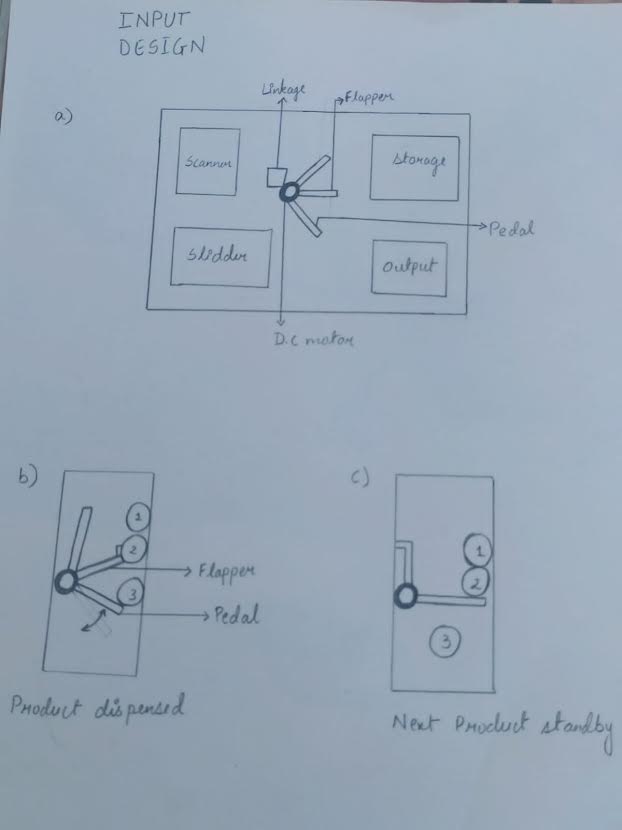 INPUT
DESIGN
a)
Linkage
Flapper
Scanner
Storage
Pedal
Slidder
Output
D.c motor
b)
c)
1
2
Flapper
3
Pedal
1
2
3
Product dispensed
Next Product standby